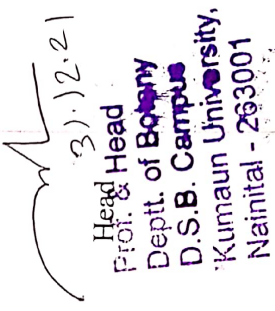 31.12.21
Head
Prof. & Head
Deptt. of Botany
D.S.B. Campus
Kumaun University,
Nainital - 263001